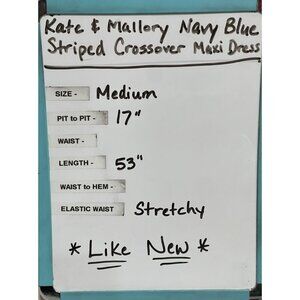 Kate & Mallory Navy Blue
Striped Crossover Maxi Dress
SIZE - Medium
PIT to PIT - 17"
WAIST -
LENGTH - 53"
WAIST to HEM -
ELASTIC WAIST Stretchy
* Like New *